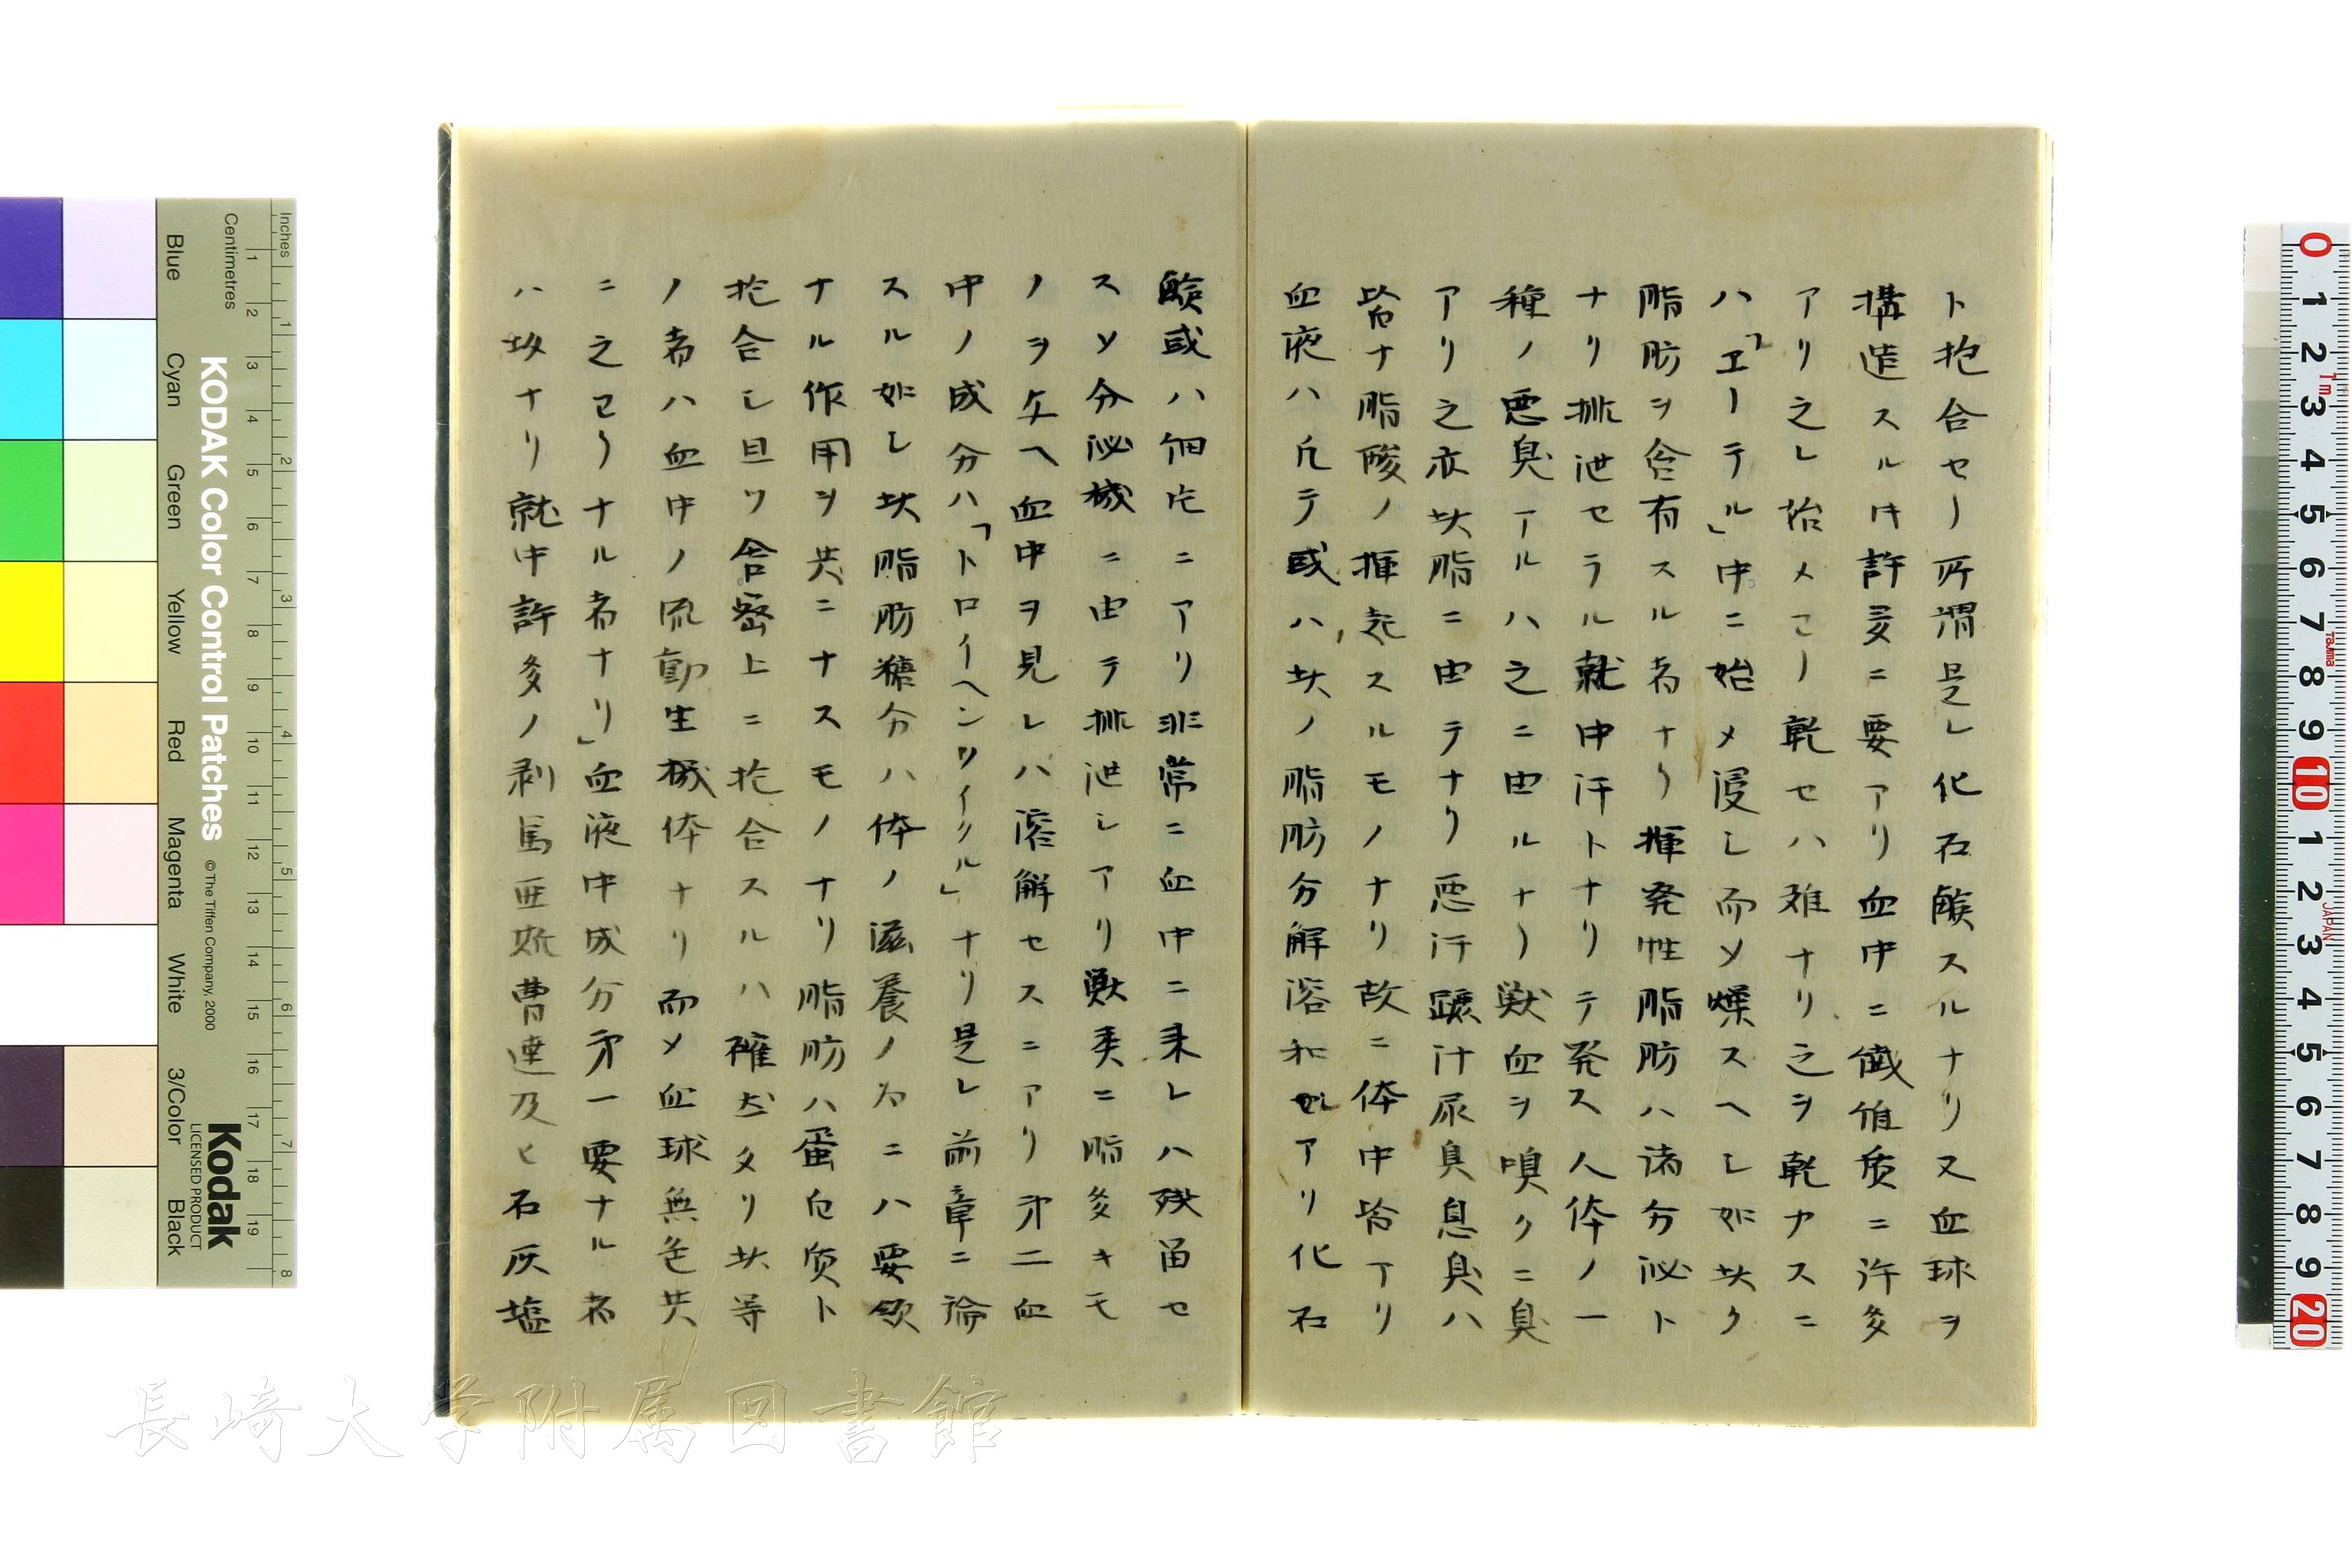 ト抱合セノ所謂是レ化石酸スルナリ又血球ヲ
構造スルハ許多ニ要アリ血中ニ織惟质ニ許多
アリ之レ始メヨリ乾セハ難ナリ之ヲ乾カスニ
ハ「エーテル」中ニ始メ浸シ而〆燥スヘシ如此ク
脂肪ヲ含有スル者ナリ揮発性脂肪ハ諸分泌ト
ナリ排泄セラル就中汗トナリテ発ス人体ノ一
種ノ悪臭アルハ之ニ由ルナリ獣血ヲ嗅クニ臭
アリ之亦此脂ニ由テナリ悪汗膿汁尿臭息臭ハ
皆ナ脂酸ノ揮起スルモノナリ故ニ体中皆アリ
血液ハ凡テ或ハ此ノ脂肪分解溶和セルアリ化石
酸或ハ細片ニアリ非常ニ血中ニ来レハ残留セ
スソ分泌機ニ由テ排泄シアリ獣类ニ脂多キモ
ノヲ与ヘ血中ヲ見レハ溶解セスニアリ才二血
中ノ成分ハ「トロイヘンワイクル」ナリ是レ前章ニ論
スル如シ此脂肪糖分ハ体ノ滋養ノ為ニハ要領
ナル作用ヲ共ニナスモノナリ脂肪ハ蛋白质ト
抱合シ且ツ舎密上ニ抱合スルハ確さタリ此等
ノ者ハ血中ノ流動生機体ナリ而〆血球無色共
ニ之ヨリナル者ナリ」血液中成分才一要ナル者
ハ塩ナリ就中許多ノ剥篤亜斯曹達及ヒ石灰塩
Inches
Centimetres
KODAK Color Control Patches
© The Tiffen Company, 2000
Kodak
LICENSED PRODUCT
Blue
Cyan
Green
Yellow
Red
Magenta
White
3/Color
Black
1 2 3 4 5 6 7 8 9 10 11 12 13 14 15 16 17 18 19
1 2 3 4 5 6 7 8
0 1 2 3 4 5 6 7 8 9 10 1 2 3 4 5 6 7 8 9 20
1m
Tajima
JAPAN
長崎大学附属図書館